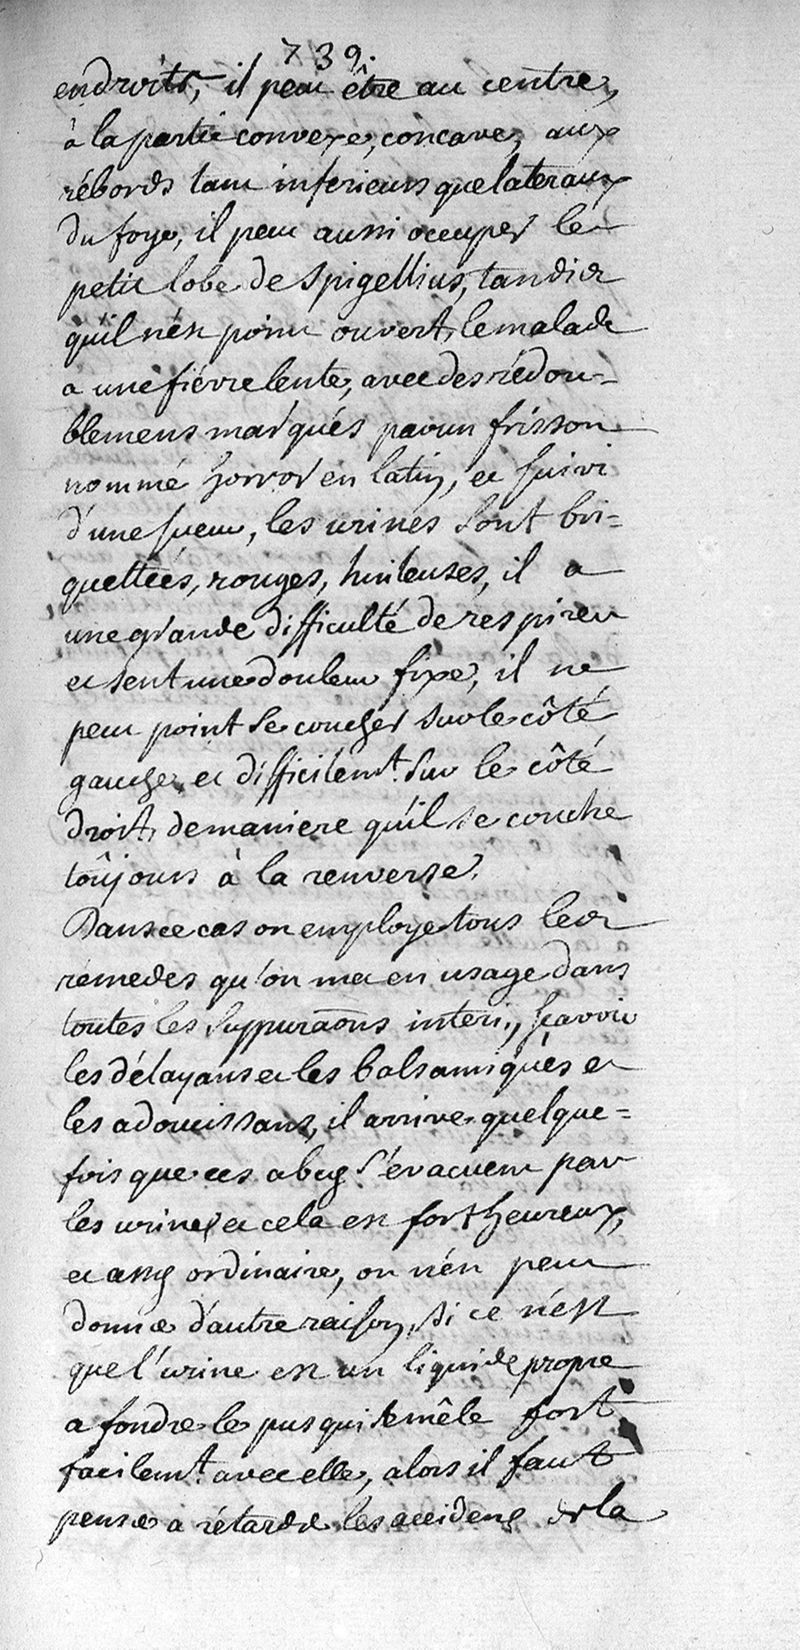 739.
endroits, il peut être au centre,
à la partie convexe, concave, aux
rébords tant inferieurs que lateraux
du foye, il peut aussi occuper le
petit lobe de Spigellius, tandis
qu'il n'ést point ouvert, le malade
a une fiévre lente, avec des rédou=
blemens marqués par un frisson
nommé horror en latin, et suivi
d'une sueur, les urines sont bri=
quettées, rouges, huileuses, il a
une grande difficulté de respirer
et sent une douleur fixe, il ne
peut point se coucher sur le côté
gauche, et difficilemt. sur le côté
droit, de maniere qu'il se couche
toûjours à la renverse.
Dans ce cas on employe tous les
remedes qu'on met en usage dans
toutes les suppuraons interi., sçavoir
les délayans et les balsamiqués et
les adoucissans, il arrive quelque=
fois que ces abcg s'évacuent par
les urines et cela est fort heureux,
et assg ordinaire, on n'én peut
donner d'autre raison, si ce n'est
que l'urine est un liquide propre
a fondre le pus qui se mêle fort
facilemt. avec elle, alors il faut
penser a rétarder les accidens de la